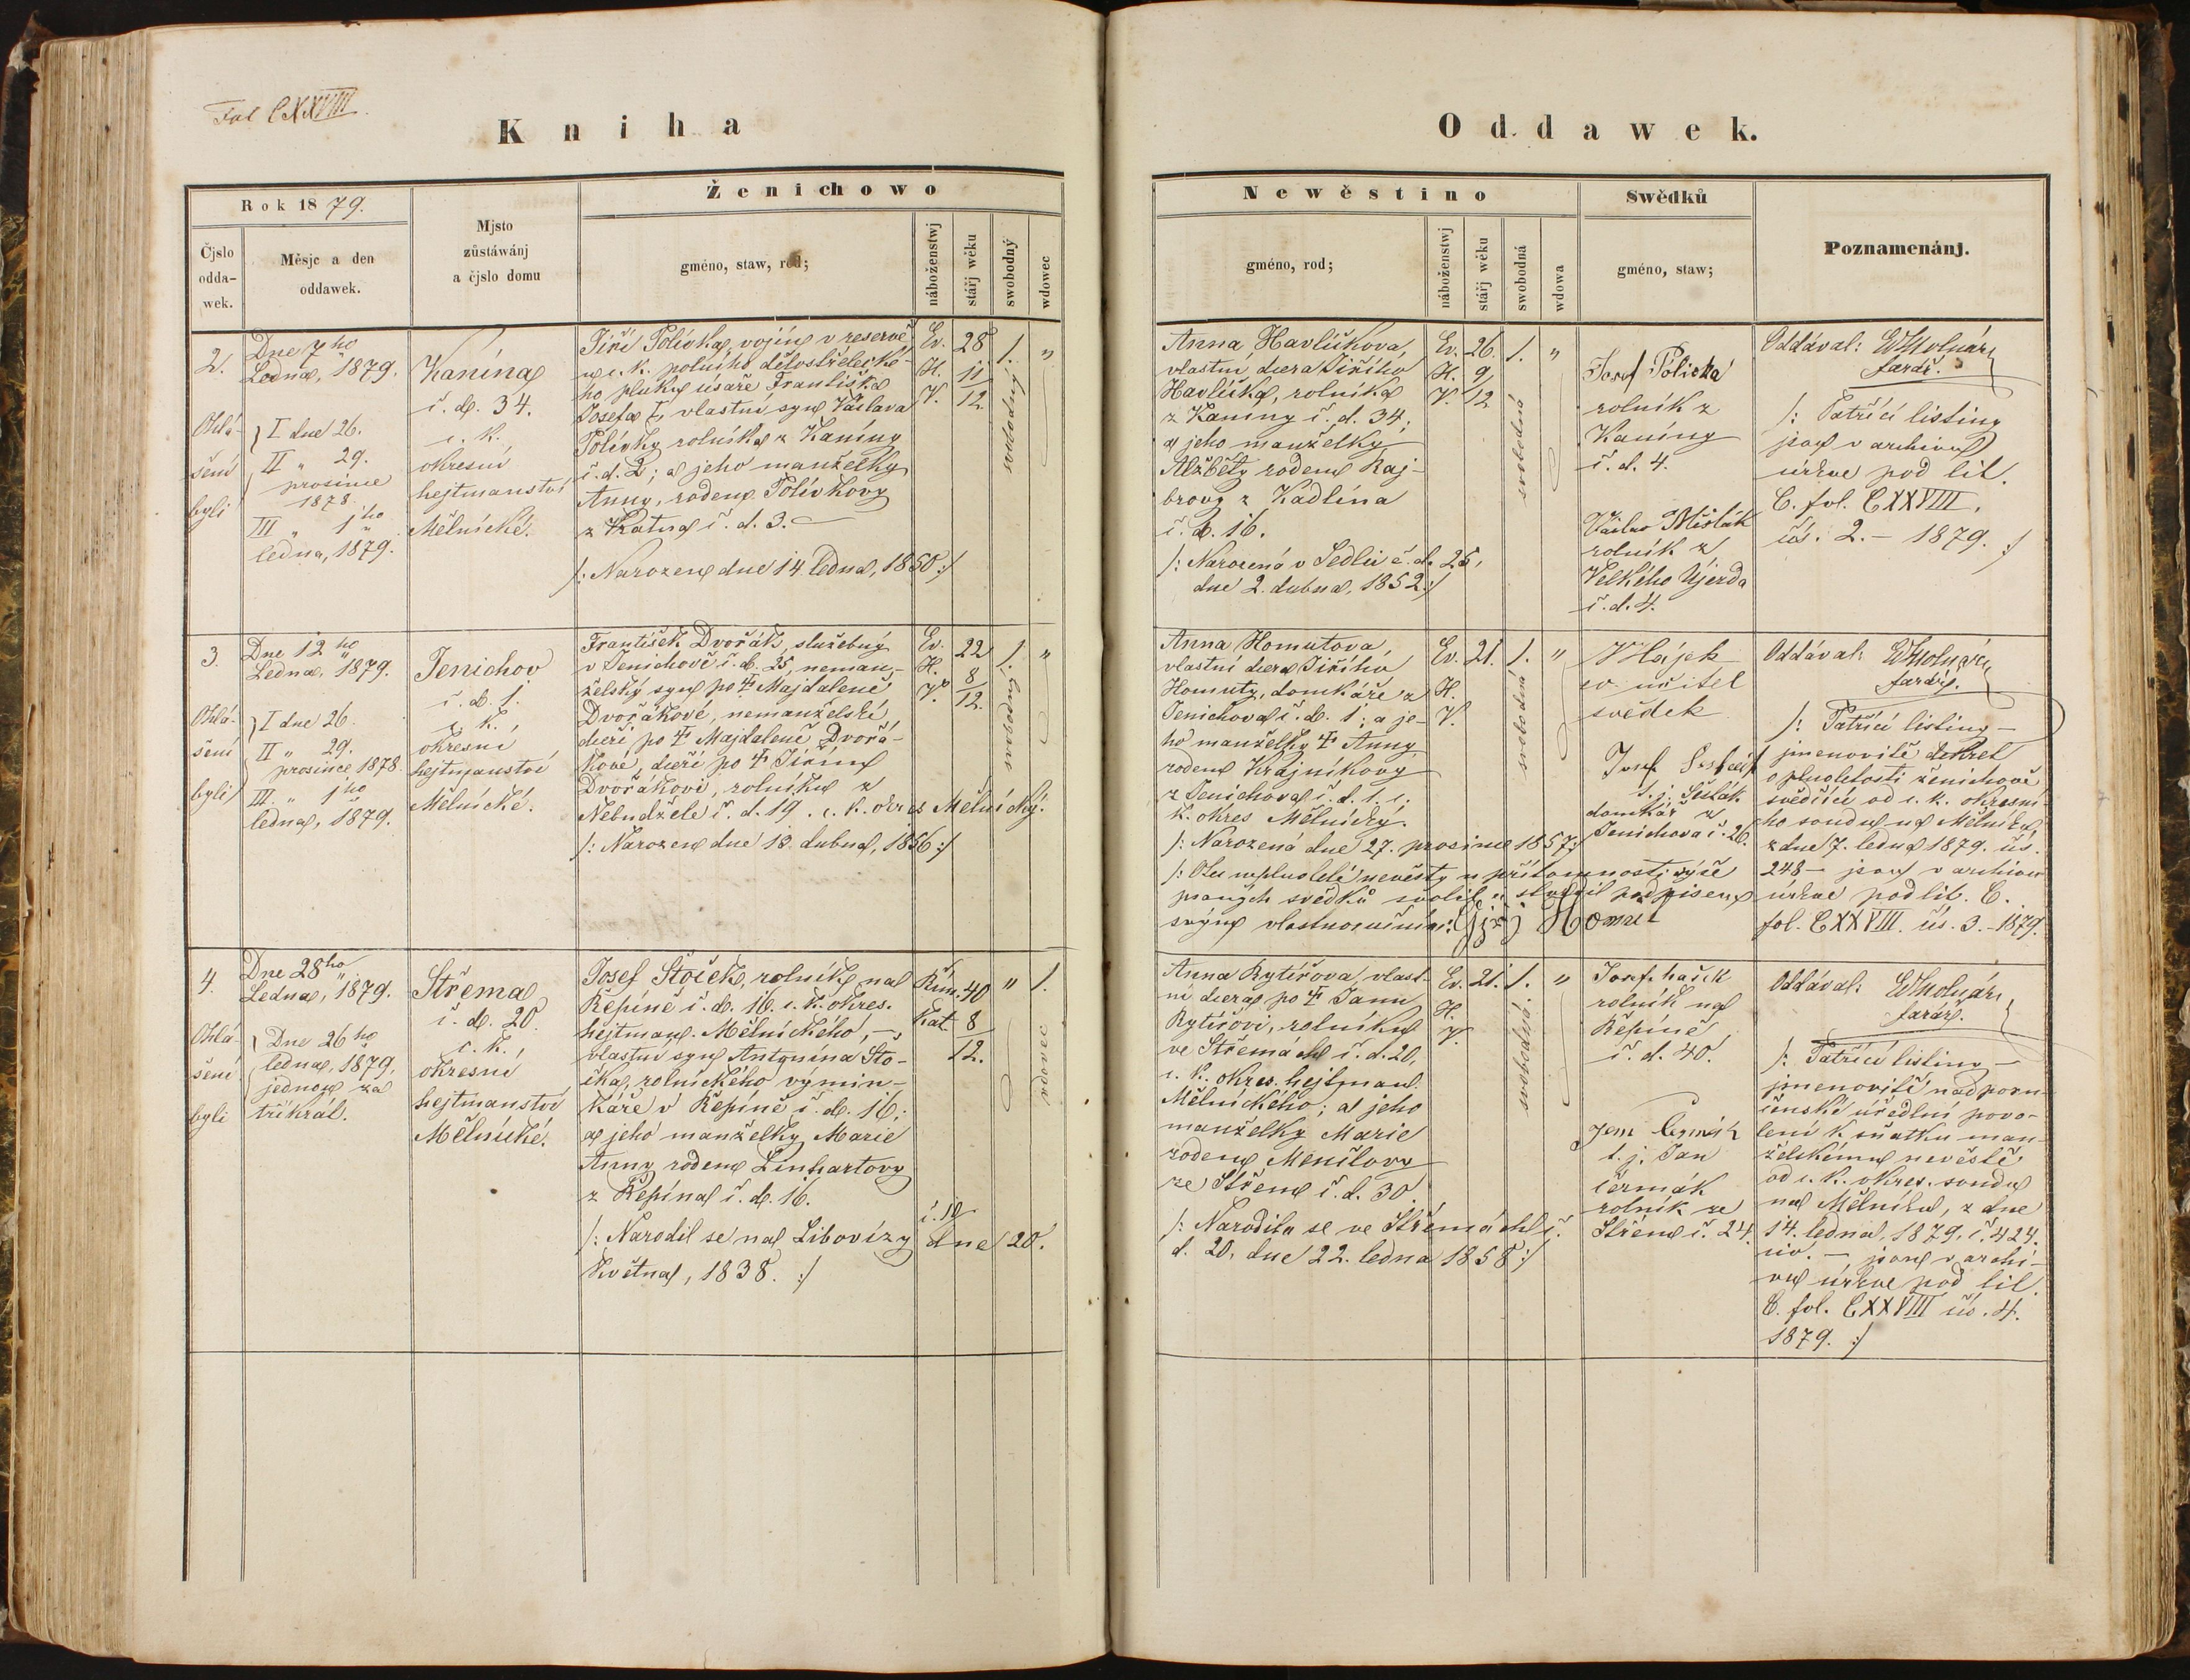 Fol CXXVIII.
Kniha
Rok 1879.
Čjslo
odda-
wek.
Měsjc a den
oddawek.
Mjsto
zůstáwánj
a čjslo domu
Ženichowo
gméno, staw, rod;
náboženstwj
stářj wěku
swobodný
wdowec
2.
Dne 7ho
Ledna, 1879.
Ohlá-
šení
byli
I dne 26.
II " 29.
prosince
1878.
III " 1ho
ledna, 1879.
Kanína
č. d. 34.
c. k.
okresní
hejtmanství
Mělnické.
Jiří Polívka, vojín v reservě
u c. k. polního dělostřelecké-
ho pluku císaře Františka
Josefa I, vlastní syn Václava
Polívky rolníka z Kaníny
č. d. 2; a jeho manželky
Anny, rozené Polívkovy
z Kadlína č. d. 3.
/: Narozen dne 14. ledna, 1850 :/
Ev.
H.
V.
28
11
12
1.
svobodný
"
3.
Dne 12ho
Ledna, 1879.
Ohlá-
šení
byli
I dne 26.
II " 29.
prosince, 1878.
III. " 1ho
ledna, 1879.
Jenichov
č. d. 1.
c. k.,
okresní
hejtmanství
Mělnické.
František Dvořák, služebný
v Jenichově č. d. 25, neman-
želský syn po † Majdaleně
Dvořákové, nemanželské
dceři po † Majdaleně Dvořá-
kové, dceři po † Jiřím
Dvořákovi, rolníku z
Nebudžele č. d. 19. c. k. okres Mělnický.
/: Narozen dne 18. dubna, 1856 :/
Ev.
H.
V.
22
8
12.
1.
svobodný
"
4.
Dne 28ho
Ledna, 1879.
Ohlá-
šení
byli
Dne 26ho
ledna, 1879,
jednou za
třikrát.
Střema
č. d. 20.
c. k.,
okresní
hejtmanství
Mělnické.
Josef Štoček, rolník na
Řepíně č. d. 16. c. k. okres.
hejtman. Mělnického, —,
vlastní syn Antonína Što-
čka, rolnického výmin-
káře v Řepíně č. d. 16;
a jeho manželky Marie
Anny rozené Linhartovy
z Řepína č. d. 16.
/: Narodil se na Libovízy č. 12 dne 20.
Května, 1838. :/
Řím.
Kat.
40
8
12.
"
1.
vdovec
Oddawek.
Newěstino
gméno, rod;
náboženstwj
stářj wěku
swobodná
wdowa
Swědků
gméno, staw;
Poznamenánj.
Anna Havlíčkova,
vlastní dcera Jiřího
Havlíčka, rolníka
z Kaníny č. d. 34;
a jeho manželky
Alžběty rozené Raj-
brovy z Kadlína
č. d. 16.
/: Narozená v Sedlci č. d. 25,
dne 2. dubna, 1852 :/
Ev.
H.
V.
26.
9
12
1.
svobodná
"
Josef Polička
rolník z
Kaníny
č. d. 4.
Václav Mišták
rolník z
Velkého Újezda
č. d. 4.
Oddával: EMolnár,
farář.
/: Patřící listiny
jsou v archivu
církve pod lit.
C. fol. CXXVIII,
čís. 2. - 1879. :/
Anna Homutova,
vlastní dcera Jiřího
Homuty, domkáře z
Jenichova č. d. 1; a je-
ho manželky † Anny
rozené Krajníkovy
z Jenichova č. d. 1. c.
k. okres Mělnický.
/: Narozená dne 27. prosince 1857 :/
/: Otec neplnoleté nevěsty u přítomnosti výše
psaných svědků svolil a stvrdil podpisem
svým vlastnoručním: Jiří Homut
Ev.
H.
V.
21.
1.
svobodná
"
V Hájek
ev. učitel
svědek
Josef
t. j. Šesták
domkář z
Jenichova č. 26.
Oddával: EMolnár,
farář.
/: Patřící listiny —
jmenovitě dekret
o plnoletosti ženichově
svědčící od c. k. okresní-
ho soudu na Mělníku,
z dne 7. ledna 1879. čís.
248 — jsou v archivu
církve pod lit. C.
fol. CXXVIII. čís. 3. - 1879.
Anna Rytířova, vlast-
ní dcera po † Janu
Rytířovi, rolníku
ve Střemách č. d. 20,
c. k. okres. hejtman.
Mělnického; a jeho
manželky Marie
rozené Menšlovy
ze Střem č. d. 30.
/: Narodila se ve Střemách č.
d. 20, dne 22. ledna 1858 :/
Ev.
H.
V.
21.
1.
svobodná.
"
Josef hašek
rolník na
Řepíně,
č. d. 40.
Jan Čermák
t. j. Jan
čermák
rolník ze
Střem č. 24.
Oddával: EMolnár,
farář.
/: Patřící listiny —
jmenovitě nadporu-
čenské úřední povo-
lení k sňatku man-
želskému nevěstě
od c. k. okres. soudu
na Mělníku, z dne
14. ledna, 1879, č. 424.
civ. — jsou v archi-
vu církve pod lit.
C. fol. CXXVIII čís. 4.
1879. :/